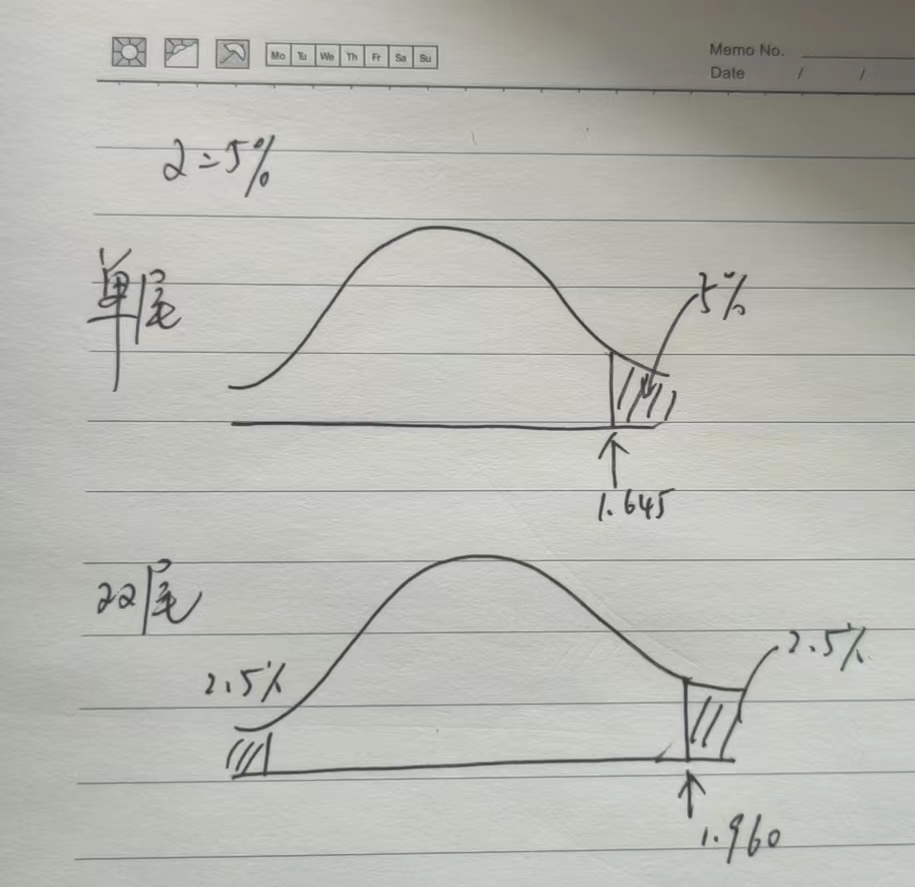 Mo Tu We Th Fr Sa Su
Memo No.
Date / /
α=5%
单尾
5%
1.645
双尾
2.5%
2.5%
1.960